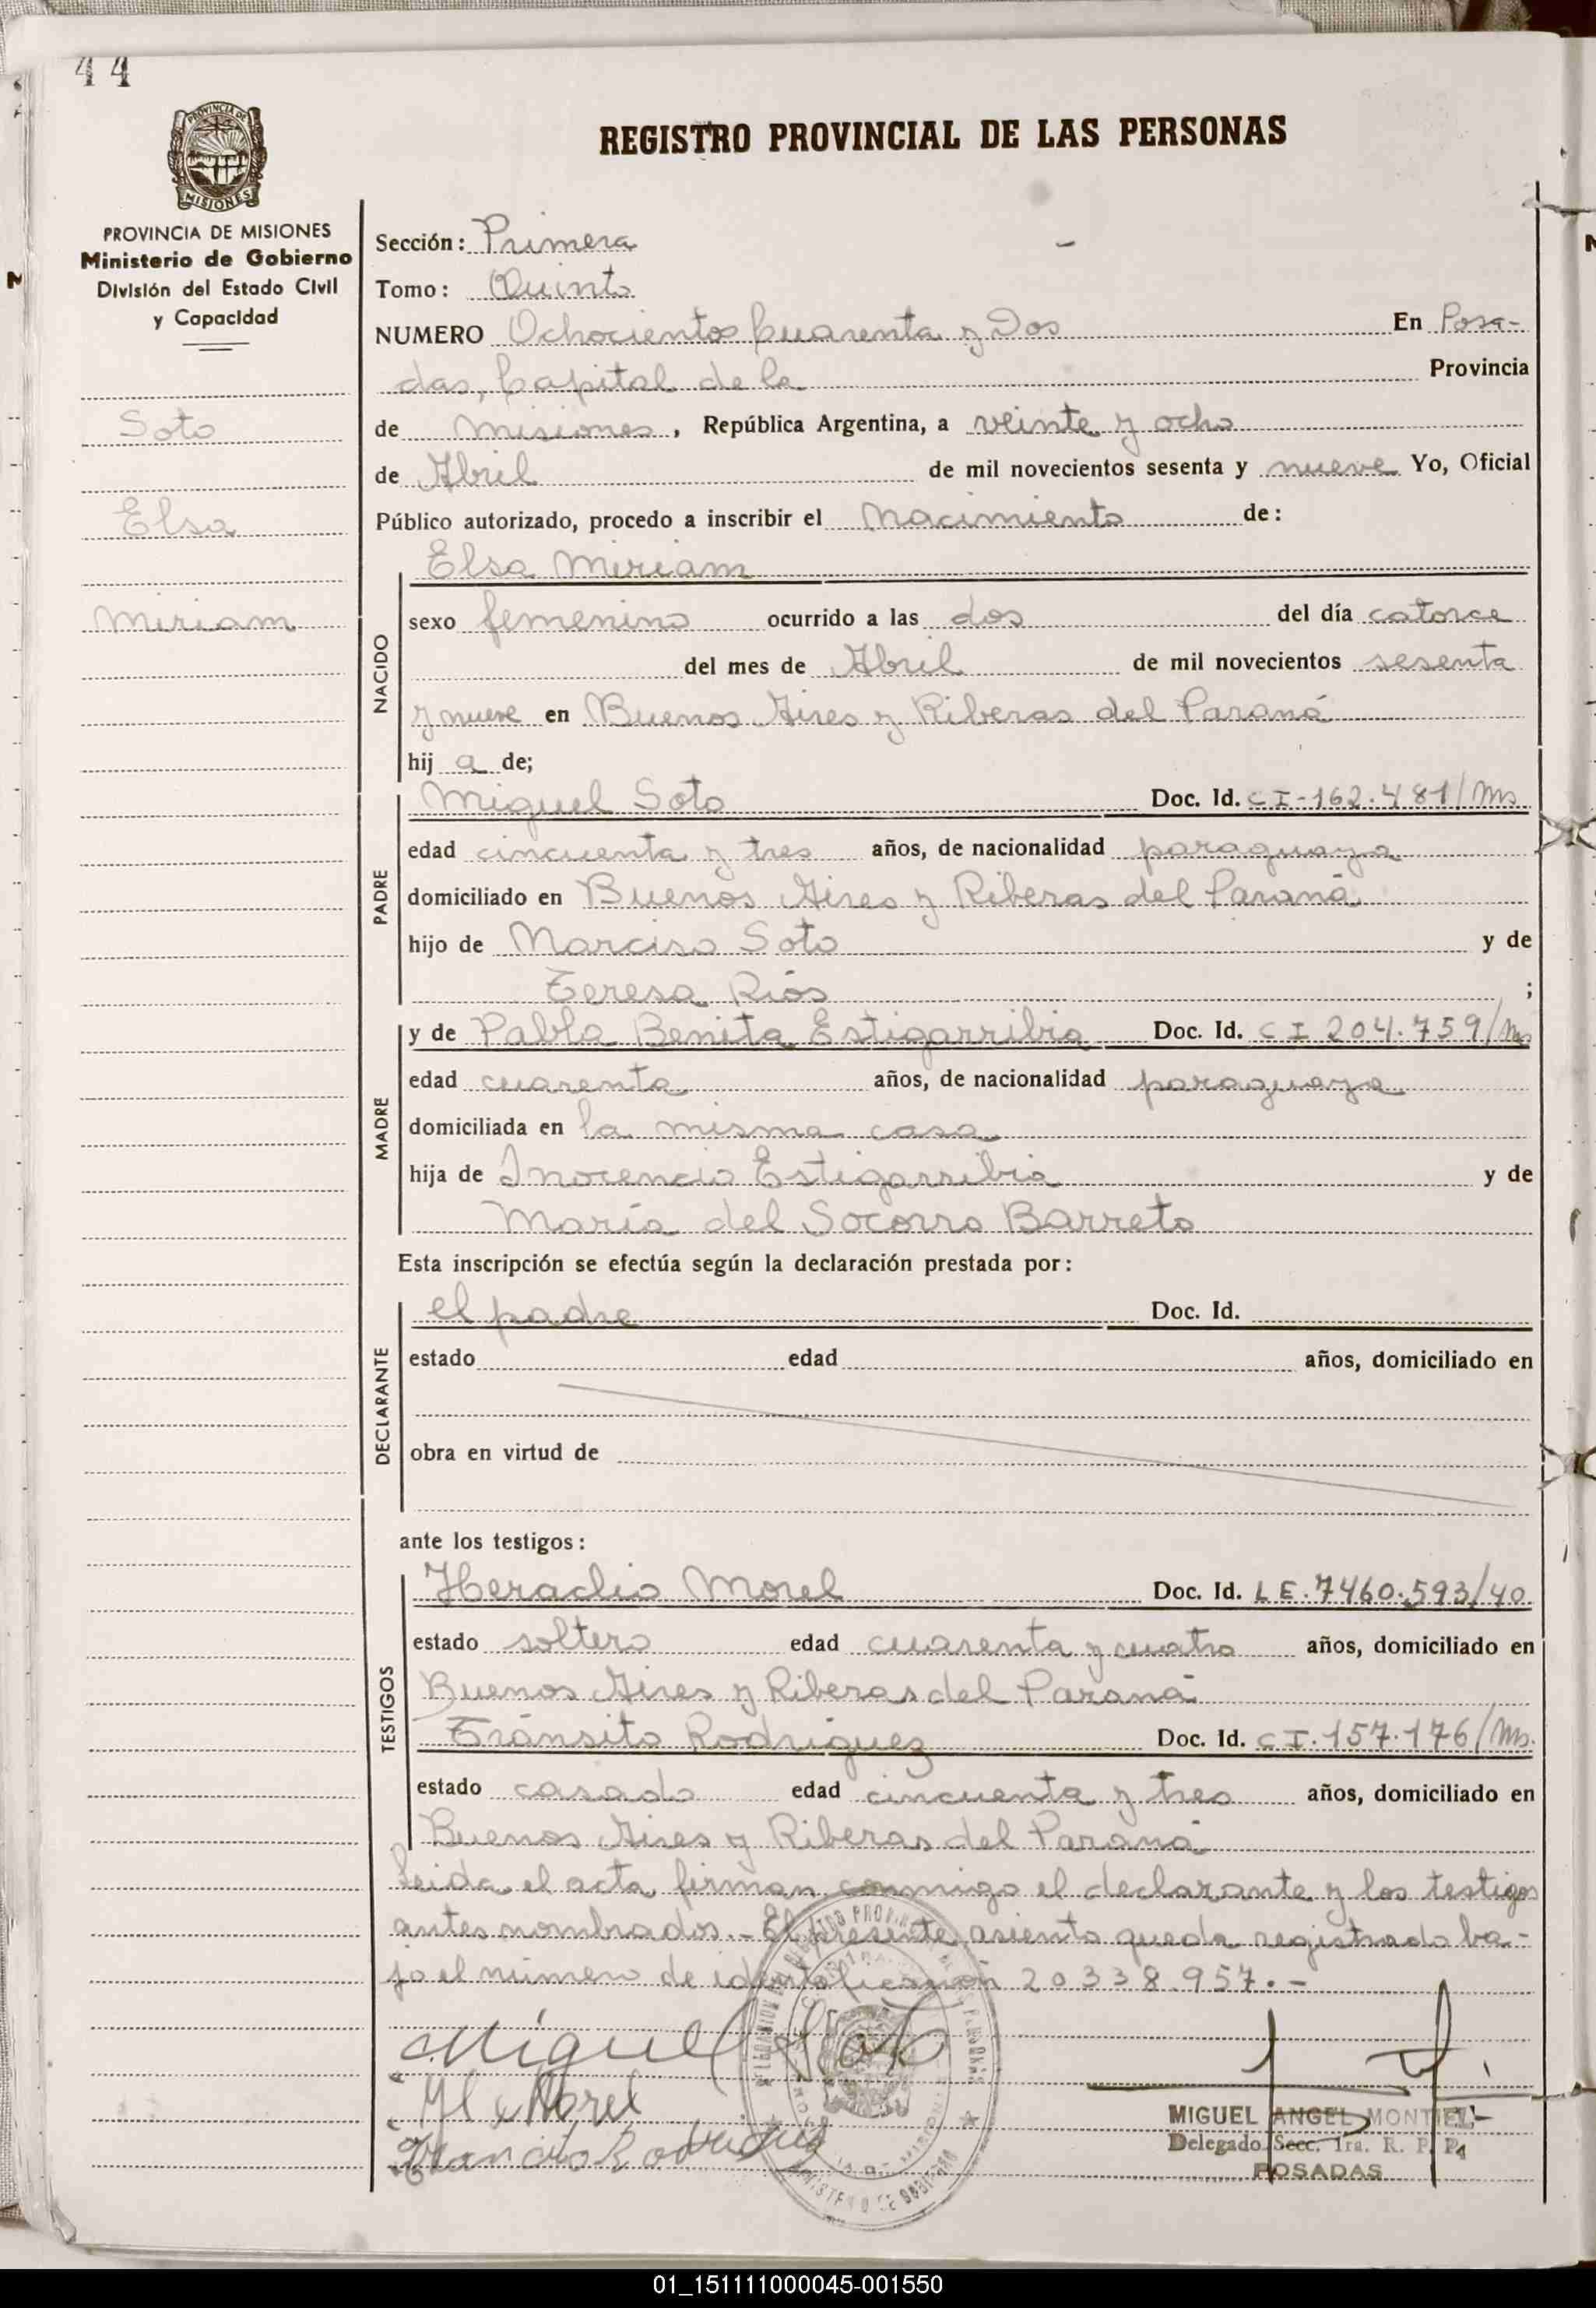 44
PROVINCIA DE
MISIONES
PROVINCIA DE MISIONES
Ministerio de Gobierno
División del Estado Civil
y Capacidad
Soto
Elsa
Miriam
REGISTRO PROVINCIAL DE LAS PERSONAS
Sección: Primera
Tomo: Quinto
NUMERO Ochocientos Cuarenta y Dos En Posa-
das, Capital de la Provincia
de Misiones, República Argentina, a veinte y ocho
de Abril de mil novecientos sesenta y nueve Yo, Oficial
Público autorizado, procedo a inscribir el Nacimiento de:
NACIDO
Elsa Miriam
sexo femenino ocurrido a las dos del día catorce
del mes de Abril de mil novecientos sesenta
y nueve en Buenos Aires y Riberas del Paraná
hij a de;
PADRE
Miguel Soto Doc. Id. C I-162.481/Ms
edad cincuenta y tres años, de nacionalidad paraguaya
domiciliado en Buenos Aires y Riberas del Paraná
hijo de Narciso Soto y de
Teresa Ríos ;
MADRE
y de Pabla Benita Estigarribia Doc. Id. C I 204.759/Ms
edad cuarenta años, de nacionalidad paraguaya
domiciliada en la misma casa
hija de Inocencio Estigarribia y de
María del Socorro Barreto
Esta inscripción se efectúa según la declaración prestada por:
DECLARANTE
el padre Doc. Id.
estado edad años, domiciliado en
obra en virtud de
ante los testigos:
TESTIGOS
Heraclio Morel Doc. Id. L E.7460.593/40
estado soltero edad cuarenta y cuatro años, domiciliado en
Buenos Aires y Riberas del Paraná
Tránsito Rodríguez Doc. Id. C I.157.176/Ms.
estado casado edad cincuenta y tres años, domiciliado en
Buenos Aires y Riberas del Paraná
Leida el acta, firman conmigo el declarante y los testigos
antes nombrados.- El presente asiento queda registrado ba-
jo el número de identificación 20338.957.-
Miguel Soto
Morel
Rodriguez
MIGUEL ANGEL MONTIEL
Delegado Secc. 1ra. R. P. P.
POSADAS
01_151111000045-001550